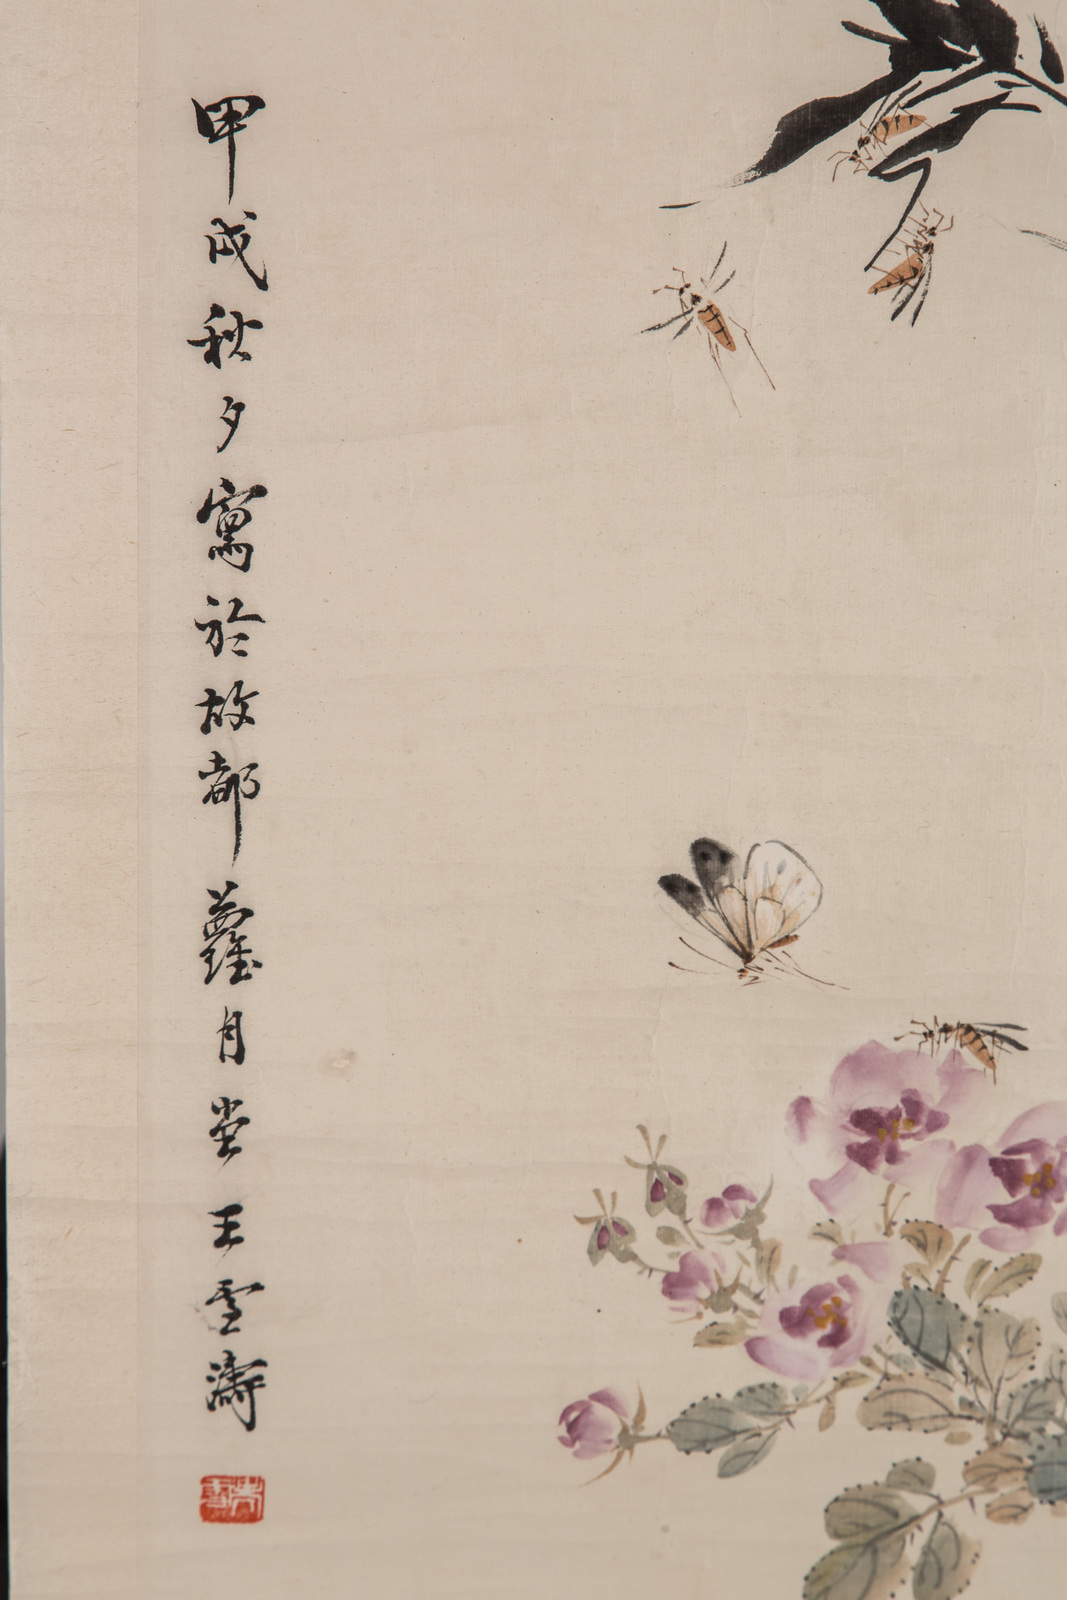 甲戌秋夕寫於故都蘿月堂王雪濤
雪濤